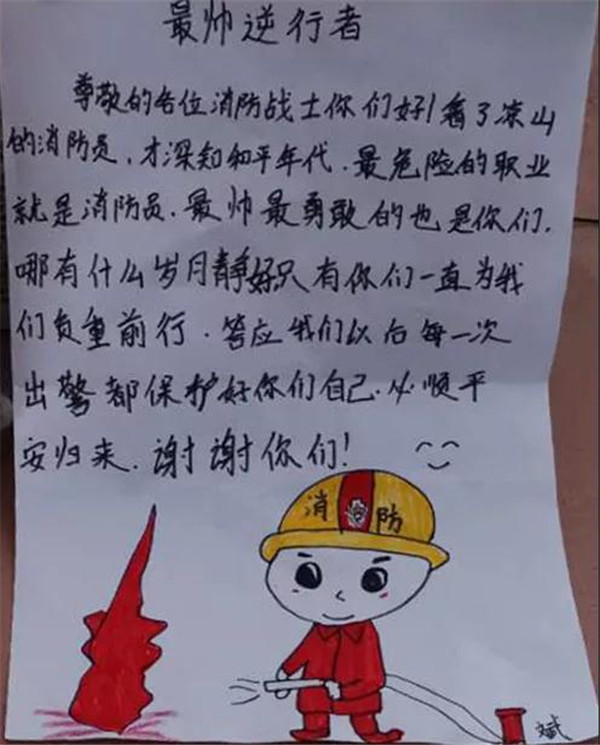 最帅逆行者
尊敬的各位消防战士你们好!看了凉山
的消防员,才深知和平年代.最危险的职业
就是消防员.最帅最勇敢的也是你们.
哪有什么岁月静好只有你们一直为我
们负重前行.答应我们以后每一次
出警都保护好你们自己.必须平
安归来.谢谢你们!
消 防
斌